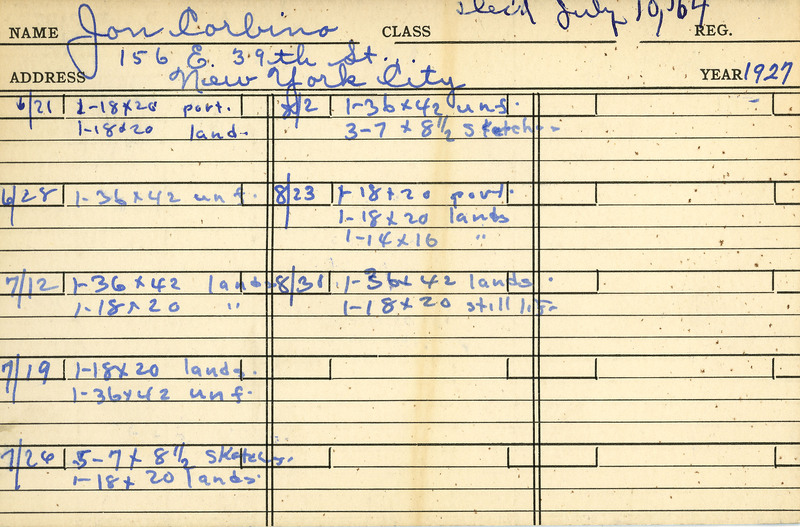 NAME Jon Corbino CLASS Dec'd July 10, '64 REG.
156 E. 39th St.,
ADDRESS New York City YEAR 1927
6/21 1-18x20 port.
1-18x20 land.
6/28 1-36x42 unf.
7/12 1-36x42 lands.
1-18x20 "
7/19 1-18x20 lands.
1-36x42 unf.
7/26 5-7x8 1/2 sketches.
1-18x20 lands.
8/2 1-36x42 unf.
3-7x8 1/2 sketches
8/23 1-18x20 port.
1-18x20 lands
1-14x16 "
8/31 1-36x42 lands.
1-18x20 still life